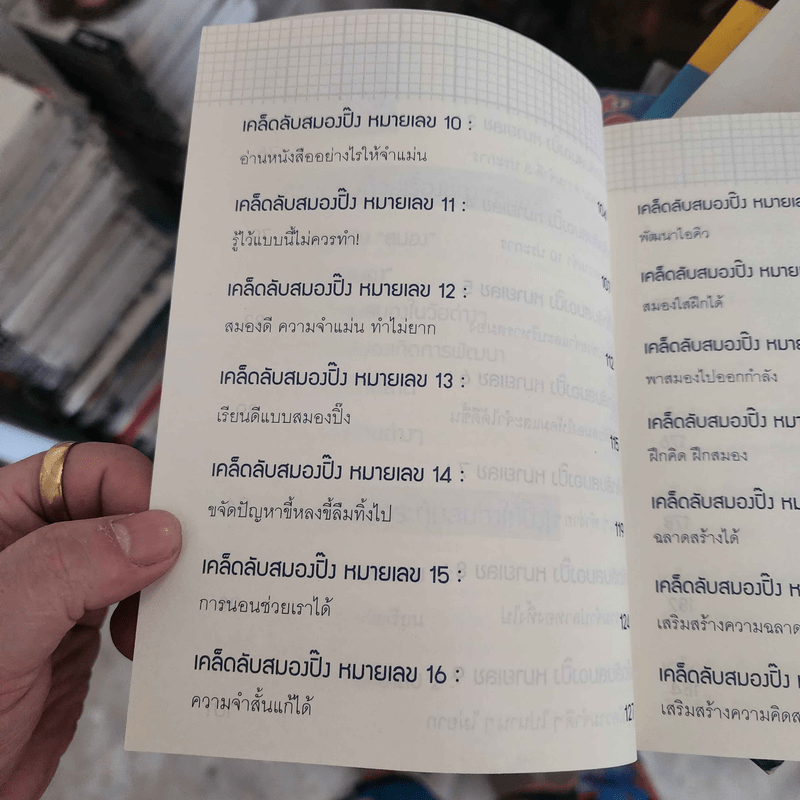 เคล็ดลับสมองปิ๊ง หมายเลข 10 :
อ่านหนังสืออย่างไรให้จำแม่น
104
เคล็ดลับสมองปิ๊ง หมายเลข 11 :
รู้ไว้แบบนี้ไม่ควรทำ!
107
เคล็ดลับสมองปิ๊ง หมายเลข 12 :
สมองดี ความจำแม่น ทำไม่ยาก
112
เคล็ดลับสมองปิ๊ง หมายเลข 13 :
เรียนดีแบบสมองปิ๊ง
115
เคล็ดลับสมองปิ๊ง หมายเลข 14 :
ขจัดปัญหาขี้หลงขี้ลืมทิ้งไป
119
เคล็ดลับสมองปิ๊ง หมายเลข 15 :
การนอนช่วยเราได้
124
เคล็ดลับสมองปิ๊ง หมายเลข 16 :
ความจำสั้นแก้ได้
127
เคล็ดลับสมองปิ๊ง
พัฒนาไอคิว
เคล็ดลับสมองปิ๊ง
สมองใสฝึกได้
เคล็ดลับสมองปิ๊ง
พาสมองไปออกกำลัง
เคล็ดลับสมองปิ๊ง
ฝึกคิด ฝึกสมอง
เคล็ดลับสมองปิ๊ง
ฉลาดสร้างได้
เคล็ดลับสมองปิ๊ง
เสริมสร้างความฉลาด
เคล็ดลับสมองปิ๊ง
เสริมสร้างความคิด